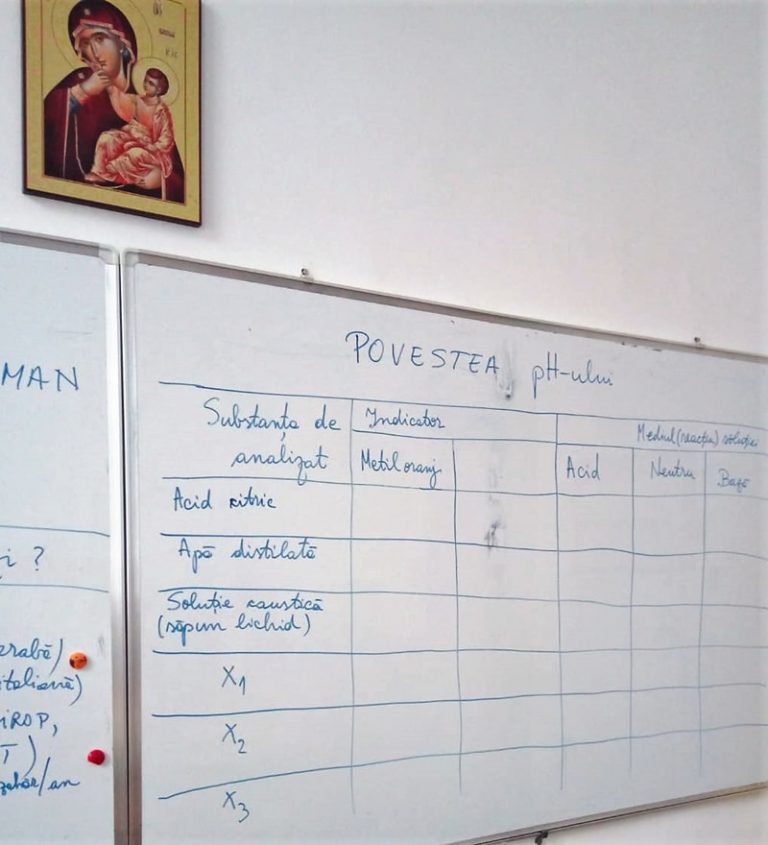 MAN
i ?
erabă)
italiană)
iROP,
T)
zahăr/an
POVESTEA pH-ului
Substanța de analizat
Indicator
Mediul (reacția) soluției
Metiloranj
Acid
Neutru
Bază
Acid citric
Apă distilată
Soluție caustică
(săpun lichid)
X1
X2
X3